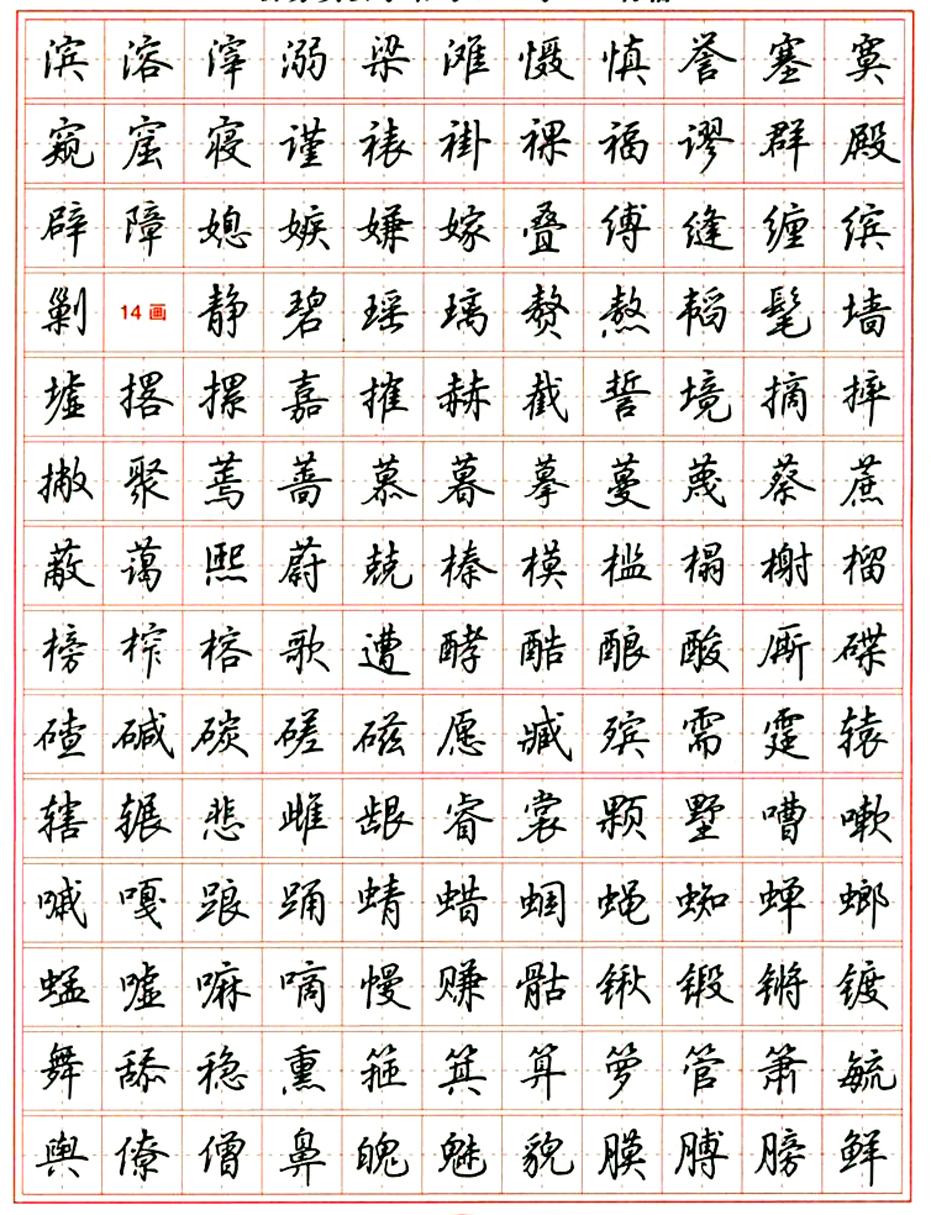 滨溶滓溺粱滩慑慎誉塞寞
窥窟寝谨裱褂裸福谬群殿
辟障媳嫉嫌嫁叠缚缝缠缤
剿14画静碧瑶璃赘熬韬髦墙
墟撂摞嘉摧赫截誓境摘摔
撇聚蔫蔷慕暮摹蔓蔑蔡蔗
蔽蔼熙蔚兢榛模槛榻榭榴
榜榨榕歌遭酵酷酿酸厮碟
碴碱碳磋磁愿臧殡需霆辕
辖辗悲雌龈睿裳颗墅嘈嗽
嘁嘎踉踊蜻蜡蝈蝇蜘蝉螂
蜢嘘嘛嘀幔赚骷锹锻锵镀
舞舔稳熏箍箕算箩管箫毓
舆僚僧鼻魄魅貌膜膊膀鲜